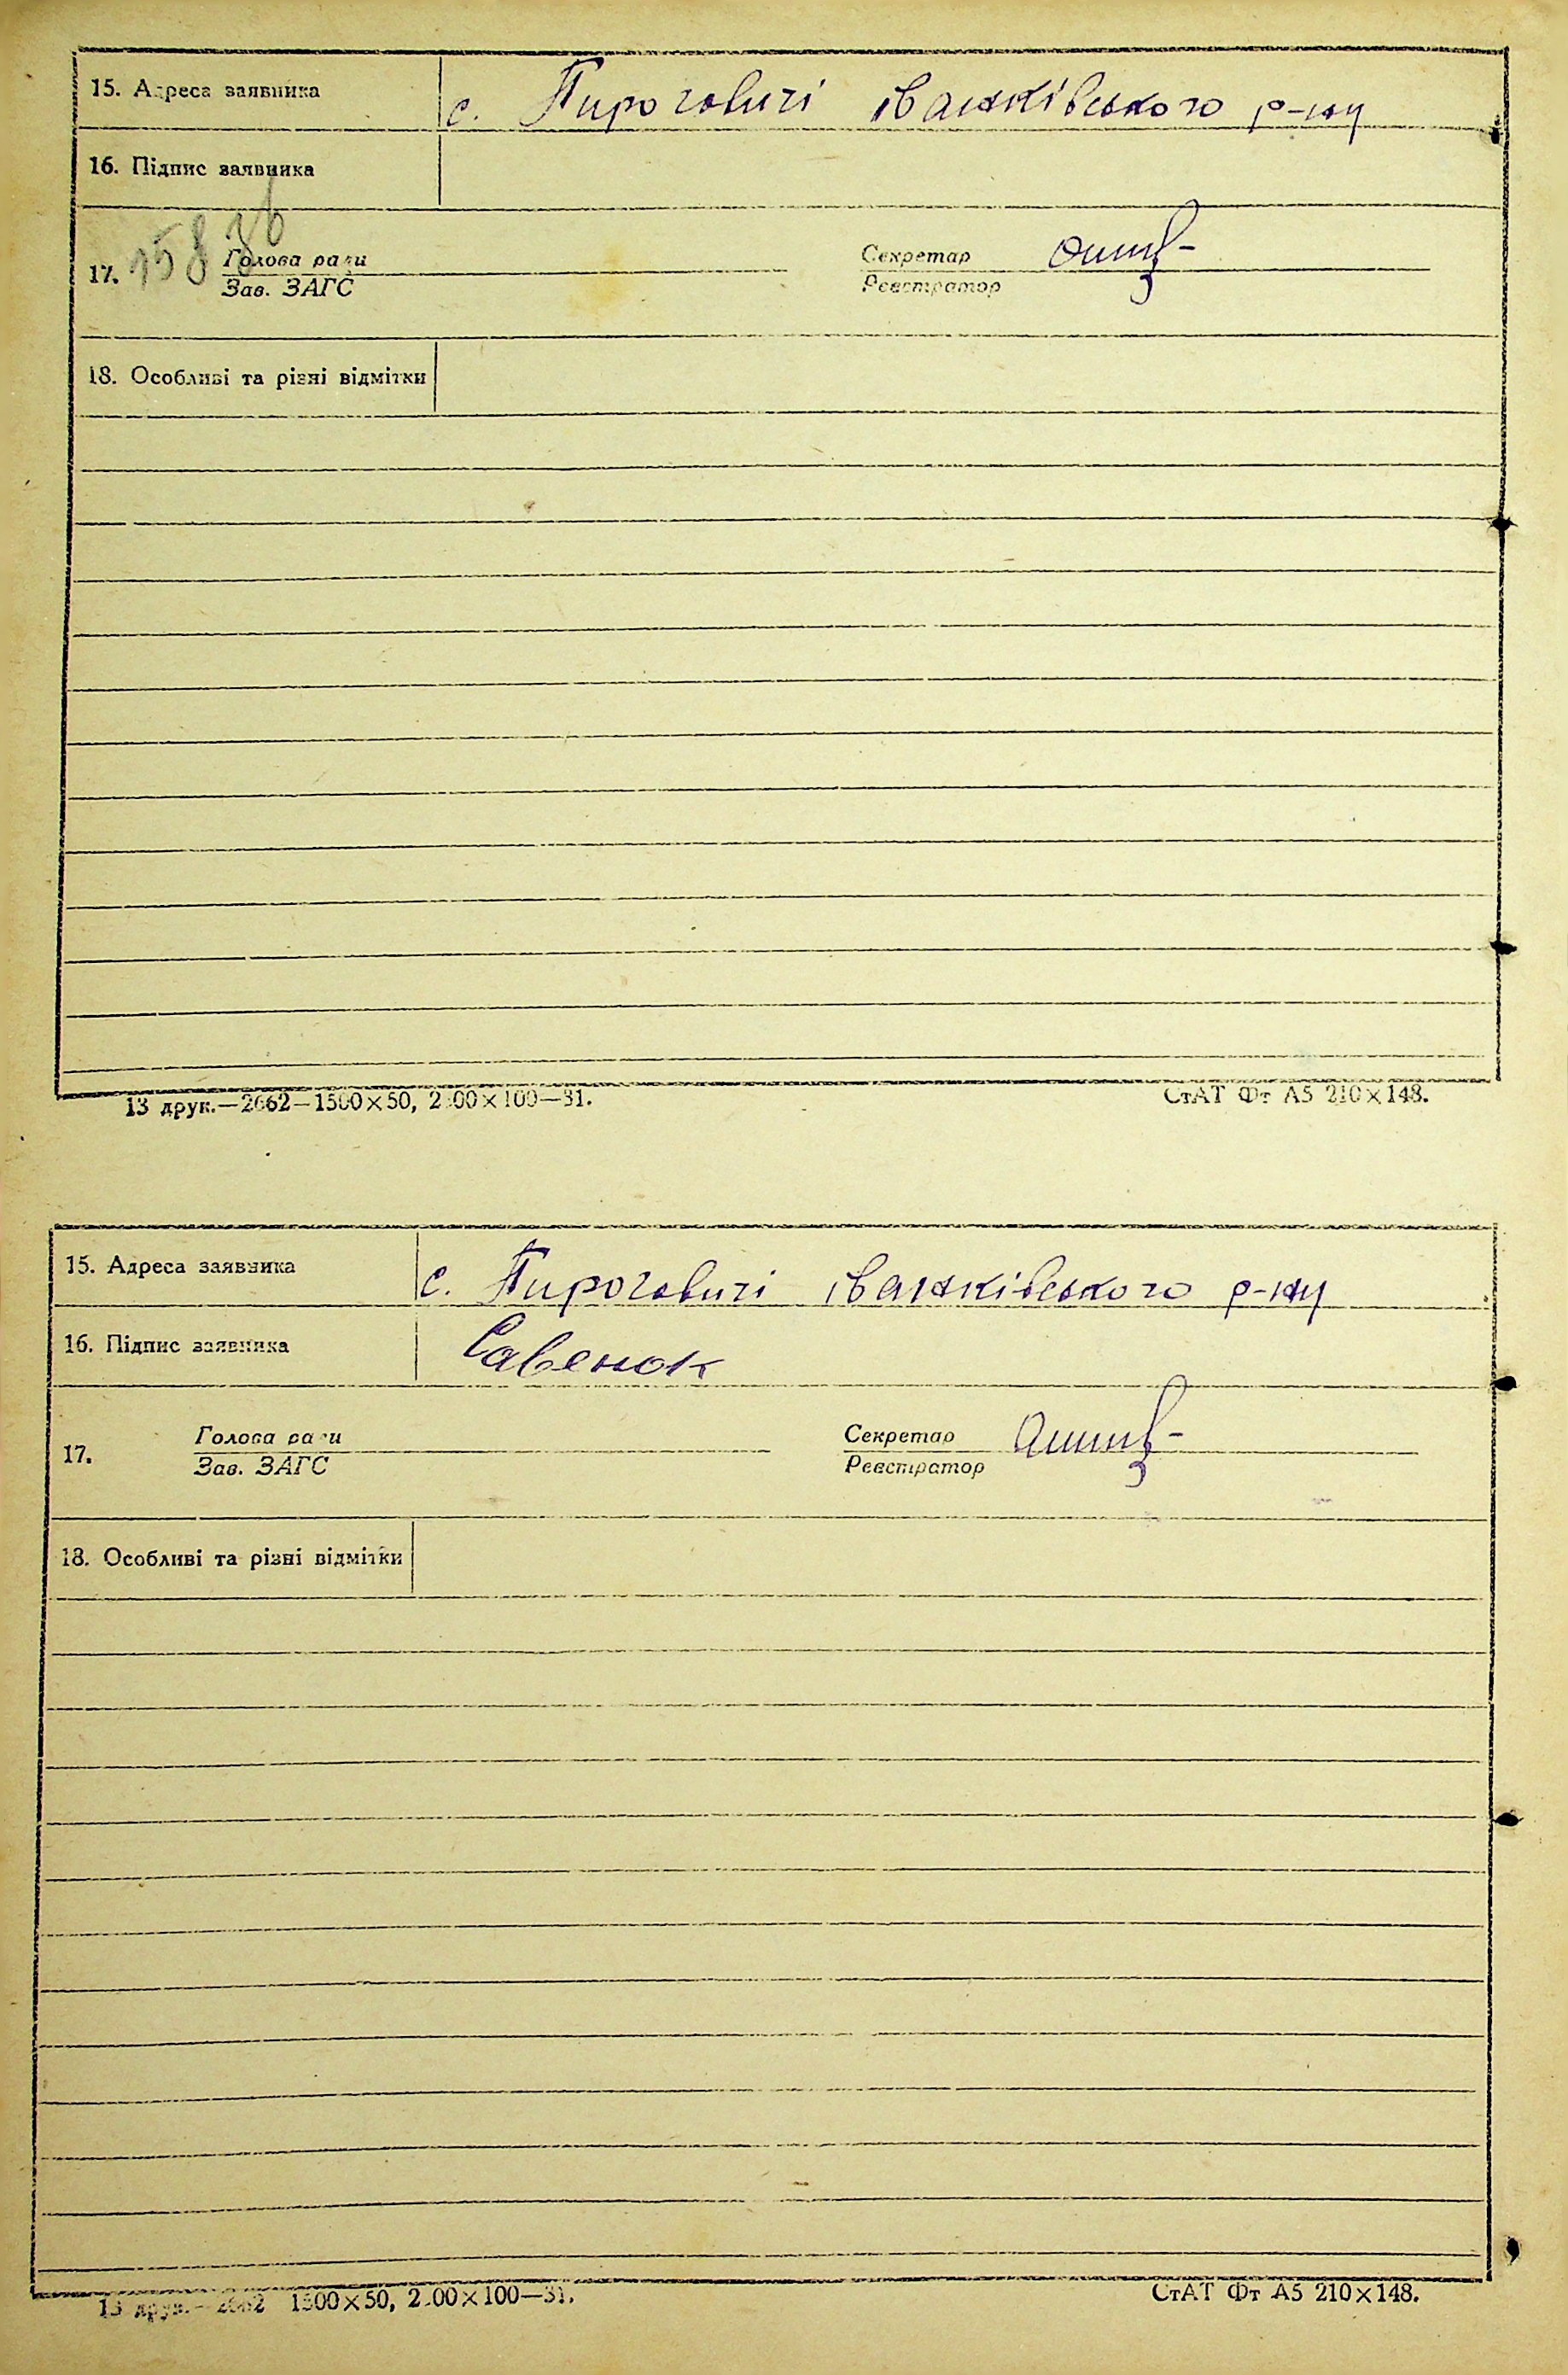 15. Адреса заявника с. Пироговичі іванківського р-ну
16. Підпис заявника
158 36
17. Голова ради Секретар
Зав. ЗАГС Реєстратор
18. Особливі та різні відмітки
13 друк.—2662—1500×50, 2.00×100—31. СтАТ Фт А5 210×148.
15. Адреса заявника с. Пироговичі іванківського р-ну
16. Підпис заявника Савенок
17. Голова ради Секретар
Зав. ЗАГС Реєстратор
18. Особливі та різні відмітки
13 друк.—2662 1500×50, 2.00×100—31. СтАТ Фт А5 210×148.